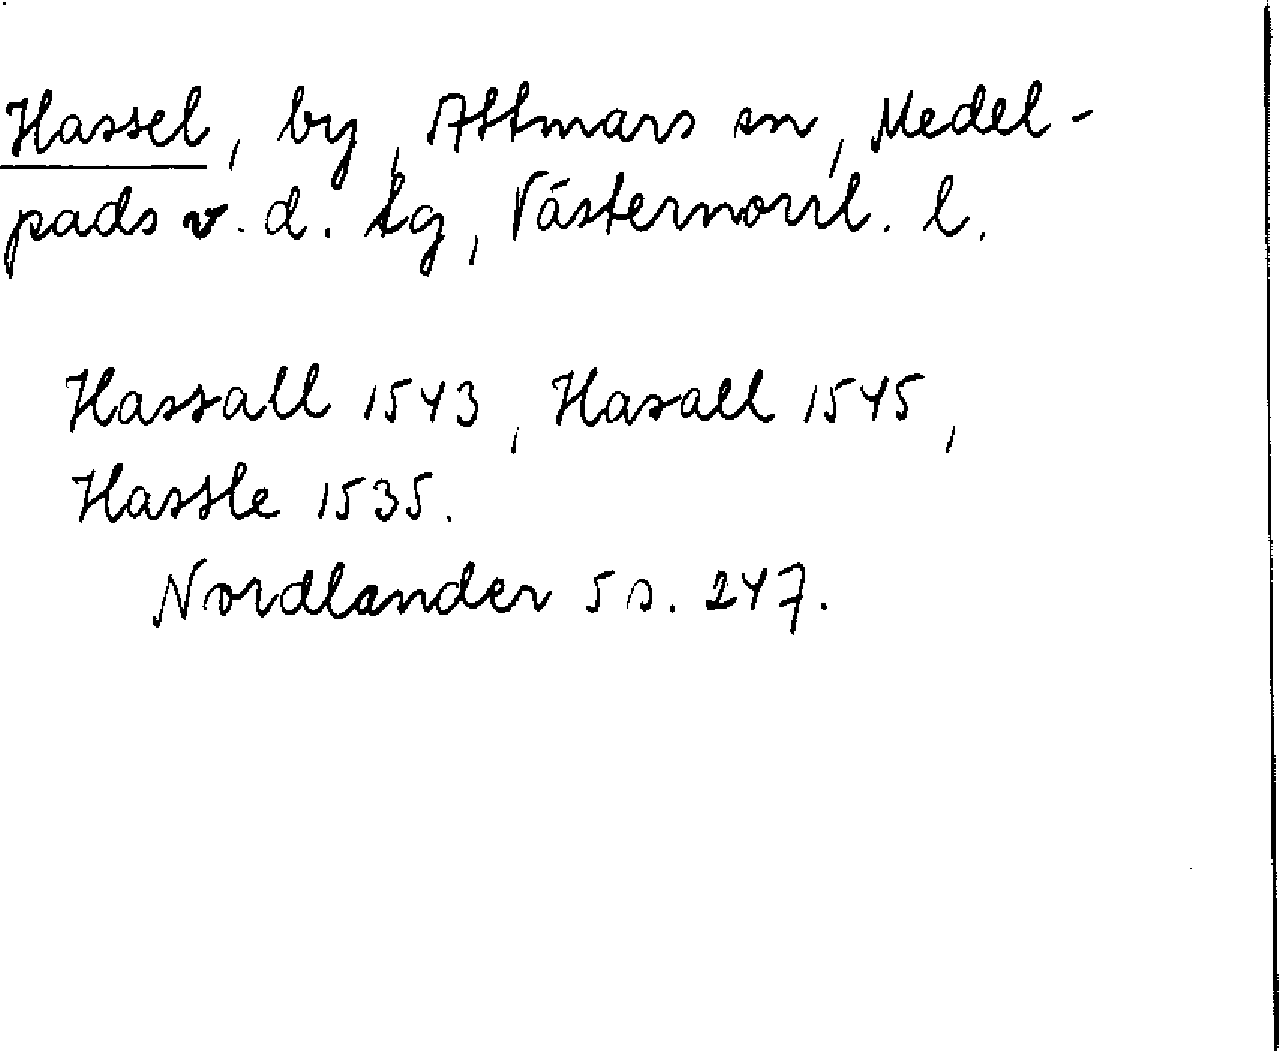 Hassel, by, Attmars sn, Medel-
pads v. d. tg, Västernorrl. l.
Hassall 1543, Hasall 1545,
Hassle 1535.
Nordlander 5 s. 247.